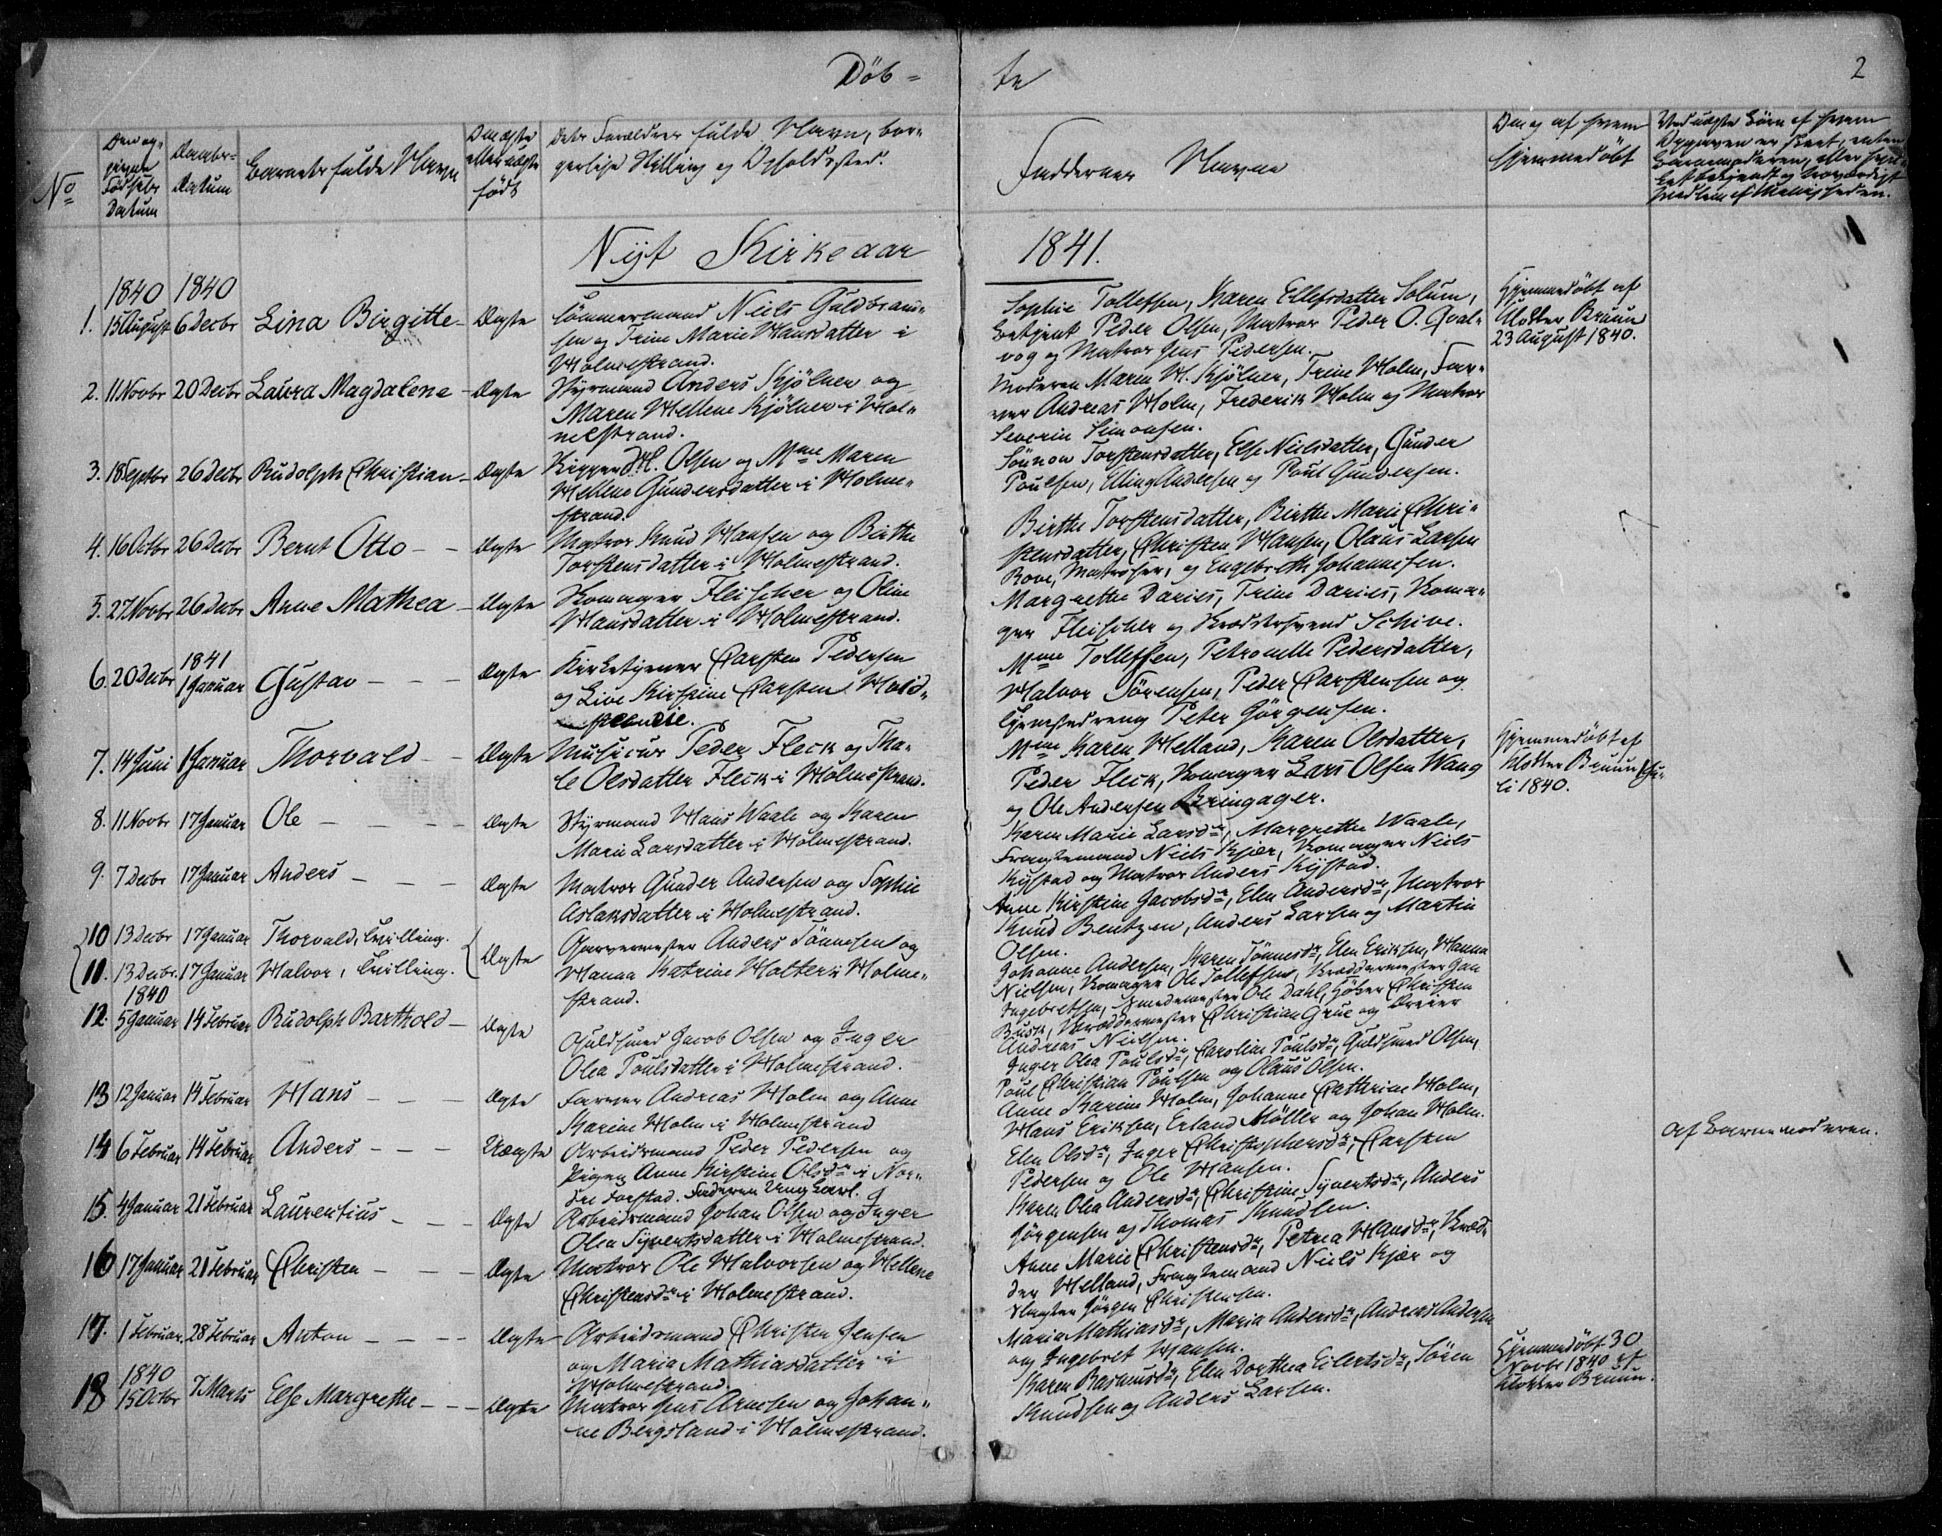 Døb-
te
2
No
Den op-
givne
Fødsels
Datum
Daabs-
Datum
Barnets fulde Navn
Om ægte
eller uægte
født
Dets Forældres fulde Navn, bor-
gerlige Stilling og Opholdssted.
Faddernes Navne
Om og af hvem
hjemmedøbt
Ved uægte Børn af hvem
Opgaven er skeet, enten
Barnemoderen, eller
bekjendt og troværdigt
Medlem af Menigheden.
Nyt Kirkeaar
1841.
1840 1840
1. 15 August 6 Decbr Lina Birgitte - Ægte
Tømmermand Niels Guldbrand-
sen og Trine Marie Hansdatter i
Holmestrand.
Sophie Tollefsen, Karen Ellefsdatter Solum,
Betjent Peder Olsen, Matros Peder O. Qval-
vog og Matros Jens Pedersen.
Hjemmedøbt af
Klokker Bruun
23 August 1840.
2. 11 Novbr 20 Decbr Laura Magdalene - Ægte
Styrmand Anders Kjölner og
Maren Hellene Kjölner i Hol-
mestrand.
Moderen Maren H. Kjölner, Trine Holm, Far-
ver Andreas Holm, Frederik Holm og Matros
Severin Simonsen.
3. 18 Septbr 26 Decbr Rudolph Christian - Ægte
Skipper H. Olsen og Mme Maren
Hellene Gundersdatter i Holme-
strand.
Torstensdatter, Else Nielsdatter, Gunder
Poulsen, Elling Andersen og Poul Gundersen.
4. 16 Octbr 26 Decbr Bernt Otto - - Ægte
Matros Knud Hansen og Birthe
Torstensdatter i Holmestrand.
Birthe Torstensdatter, Birthe Marie Chri-
stensdatter, Christen Hansen, Olaus Larsen
Bove, Matroser, og Engebreth Johannesen.
5. 27 Novbr 26 Decbr Anne Mathea - Ægte
Skomager Fleischer og Oline
Hansdatter i Holmestrand.
Margrethe Daries, Trine Daries, Skoma-
ger Fleischer og Skrædersvend Schive.
1841
6. 20 Decbr 1 Januar Gustav - - - Ægte
Kirketjener Carsten Pedersen
og Live Kirstine Carsten
Mme Tollefsen, Petronelle Pedersdatter,
Halvor Sörensen, Peder Carstensen og
Tjenestedreng Peter Jörgensen.
7. 14 Juni 1 Januar Thorvald - - Ægte
Musicus Peder Fleck og Tha-
le Olesdatter Fleck i Holmestrand.
Mme Karen Helland, Karen Olesdatter,
Peder Fleck, Skomager Lars Olsen Wang
og Ole Andersen Bringager.
Hjemmedøbt af
Klokker Bruun Ju-
li 1840.
8. 11 Novbr 17 Januar Ole - - - Ægte
Styrmand Hans Waale og Karen
Marie Larsdatter i Holmestrand.
Karen Marie Larsdr, Margrethe Waale,
Fragtemand Niels Kjær, Skomager Niels
Kystad og Matros Anders Kystad.
9. 7 Decbr 17 Januar Anders - - - Ægte
Matros Gunder Andersen og Sophie
Aslaksdatter i Holmestrand.
Anne Kirstine Jacobsdr, Elen Andersdr, Matros
Knud Bentzen, Anders Larsen og Martin
Olsen.
10 13 Decbr 17 Januar Thorvald, Tvilling.
11. 13 Decbr. 17 Januar Halvor, Tvilling. Ægte
Garvermester Anders Tönnesen og
Hanna Katrine Holter i Holme-
strand.
Johanne Andersen, Karen Tönnesdr, Elen Eriksen, Hanna
Nielsen, Skomager Ole Tollefsen, Skræddermester Jan
Ingebretsen, Smedemester Ole Dahl, Høker Christen
Busk, Skræddermester Christian Grue og Dreier
Andreas Nielsen.
1840
12. 5 Januar 14 Februar Rudolph Barthold - Ægte
Guldsmed Jacob Olsen og Inger
Olea Poulsdatter i Holmestrand.
Inger Olea Poulsdr, Caroline Poulsdr, Guldsmed Olsen,
Poul Christian Poulsen og Olaus Olsen.
13 12 Januar 14 Februar Hans - - - Ægte
Farver Andreas Holm og Anne
Karine Holm i Holmestrand
Anne Karine Holm, Johanne Cathrine Holm,
Hans Eriksen, Erland Möller og Johan Holm.
14 6 Februar 14 Februar Anders - - - Uægte
Arbeidsmand Peder Pedersen og
Pigen Anne Kirstine Olsdr i Nor-
dre Forstad. Faderen Ungkarl.
Elen Olsdr, Inger Christophersdr, Carsten
Pedersen og Ole Hansen.
af Barnemoderen.
15. 4 Januar 21 Februar Laurentius - - - Ægte
Arbeidsmand Johan Olsen og Inger
Olea Syvertsdatter i Holmestrand.
Karen Olea Andersdr, Christine Syvertsdr, Anders
Jörgensen og Thomas Knudsen.
16 17 Januar 21 Februar Christen - - - Ægte
Matros Ole Halvorsen og Hellene
Christensdr i Holmestrand.
Anne Marie Christensdr, Petrea Hansdr, Skræd-
der Helland, Fragtemand Niels Kjær og
Slagter Jörgen Christensen.
17. 1 Februar. 28 Februar Anton - - - Ægte
Arbeidsmand Christen Jensen
og Maria Mathiasdatter i
Holmestrand.
Maria Mathiasdr, Maria Andersdr, Andreas Andersen
og Ingebret Hansen.
1840
18 15 Octbr 7 Marts Else Margrethe - - - Ægte
Matros Jens Arnesen og Johan-
ne Bergsland i Holmestrand.
Karen Rasmusdr, Elen Dorthea Eilertsdr, Sören
Knudsen og Anders Larsen.
Hjemmedøbt 30
Novbr 1840 af
Klokker Bruun.